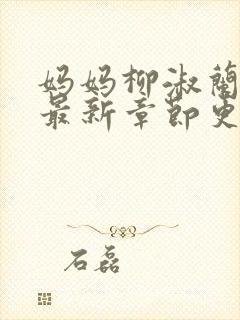 妈妈柳淑蘭
最新章節更
石磊